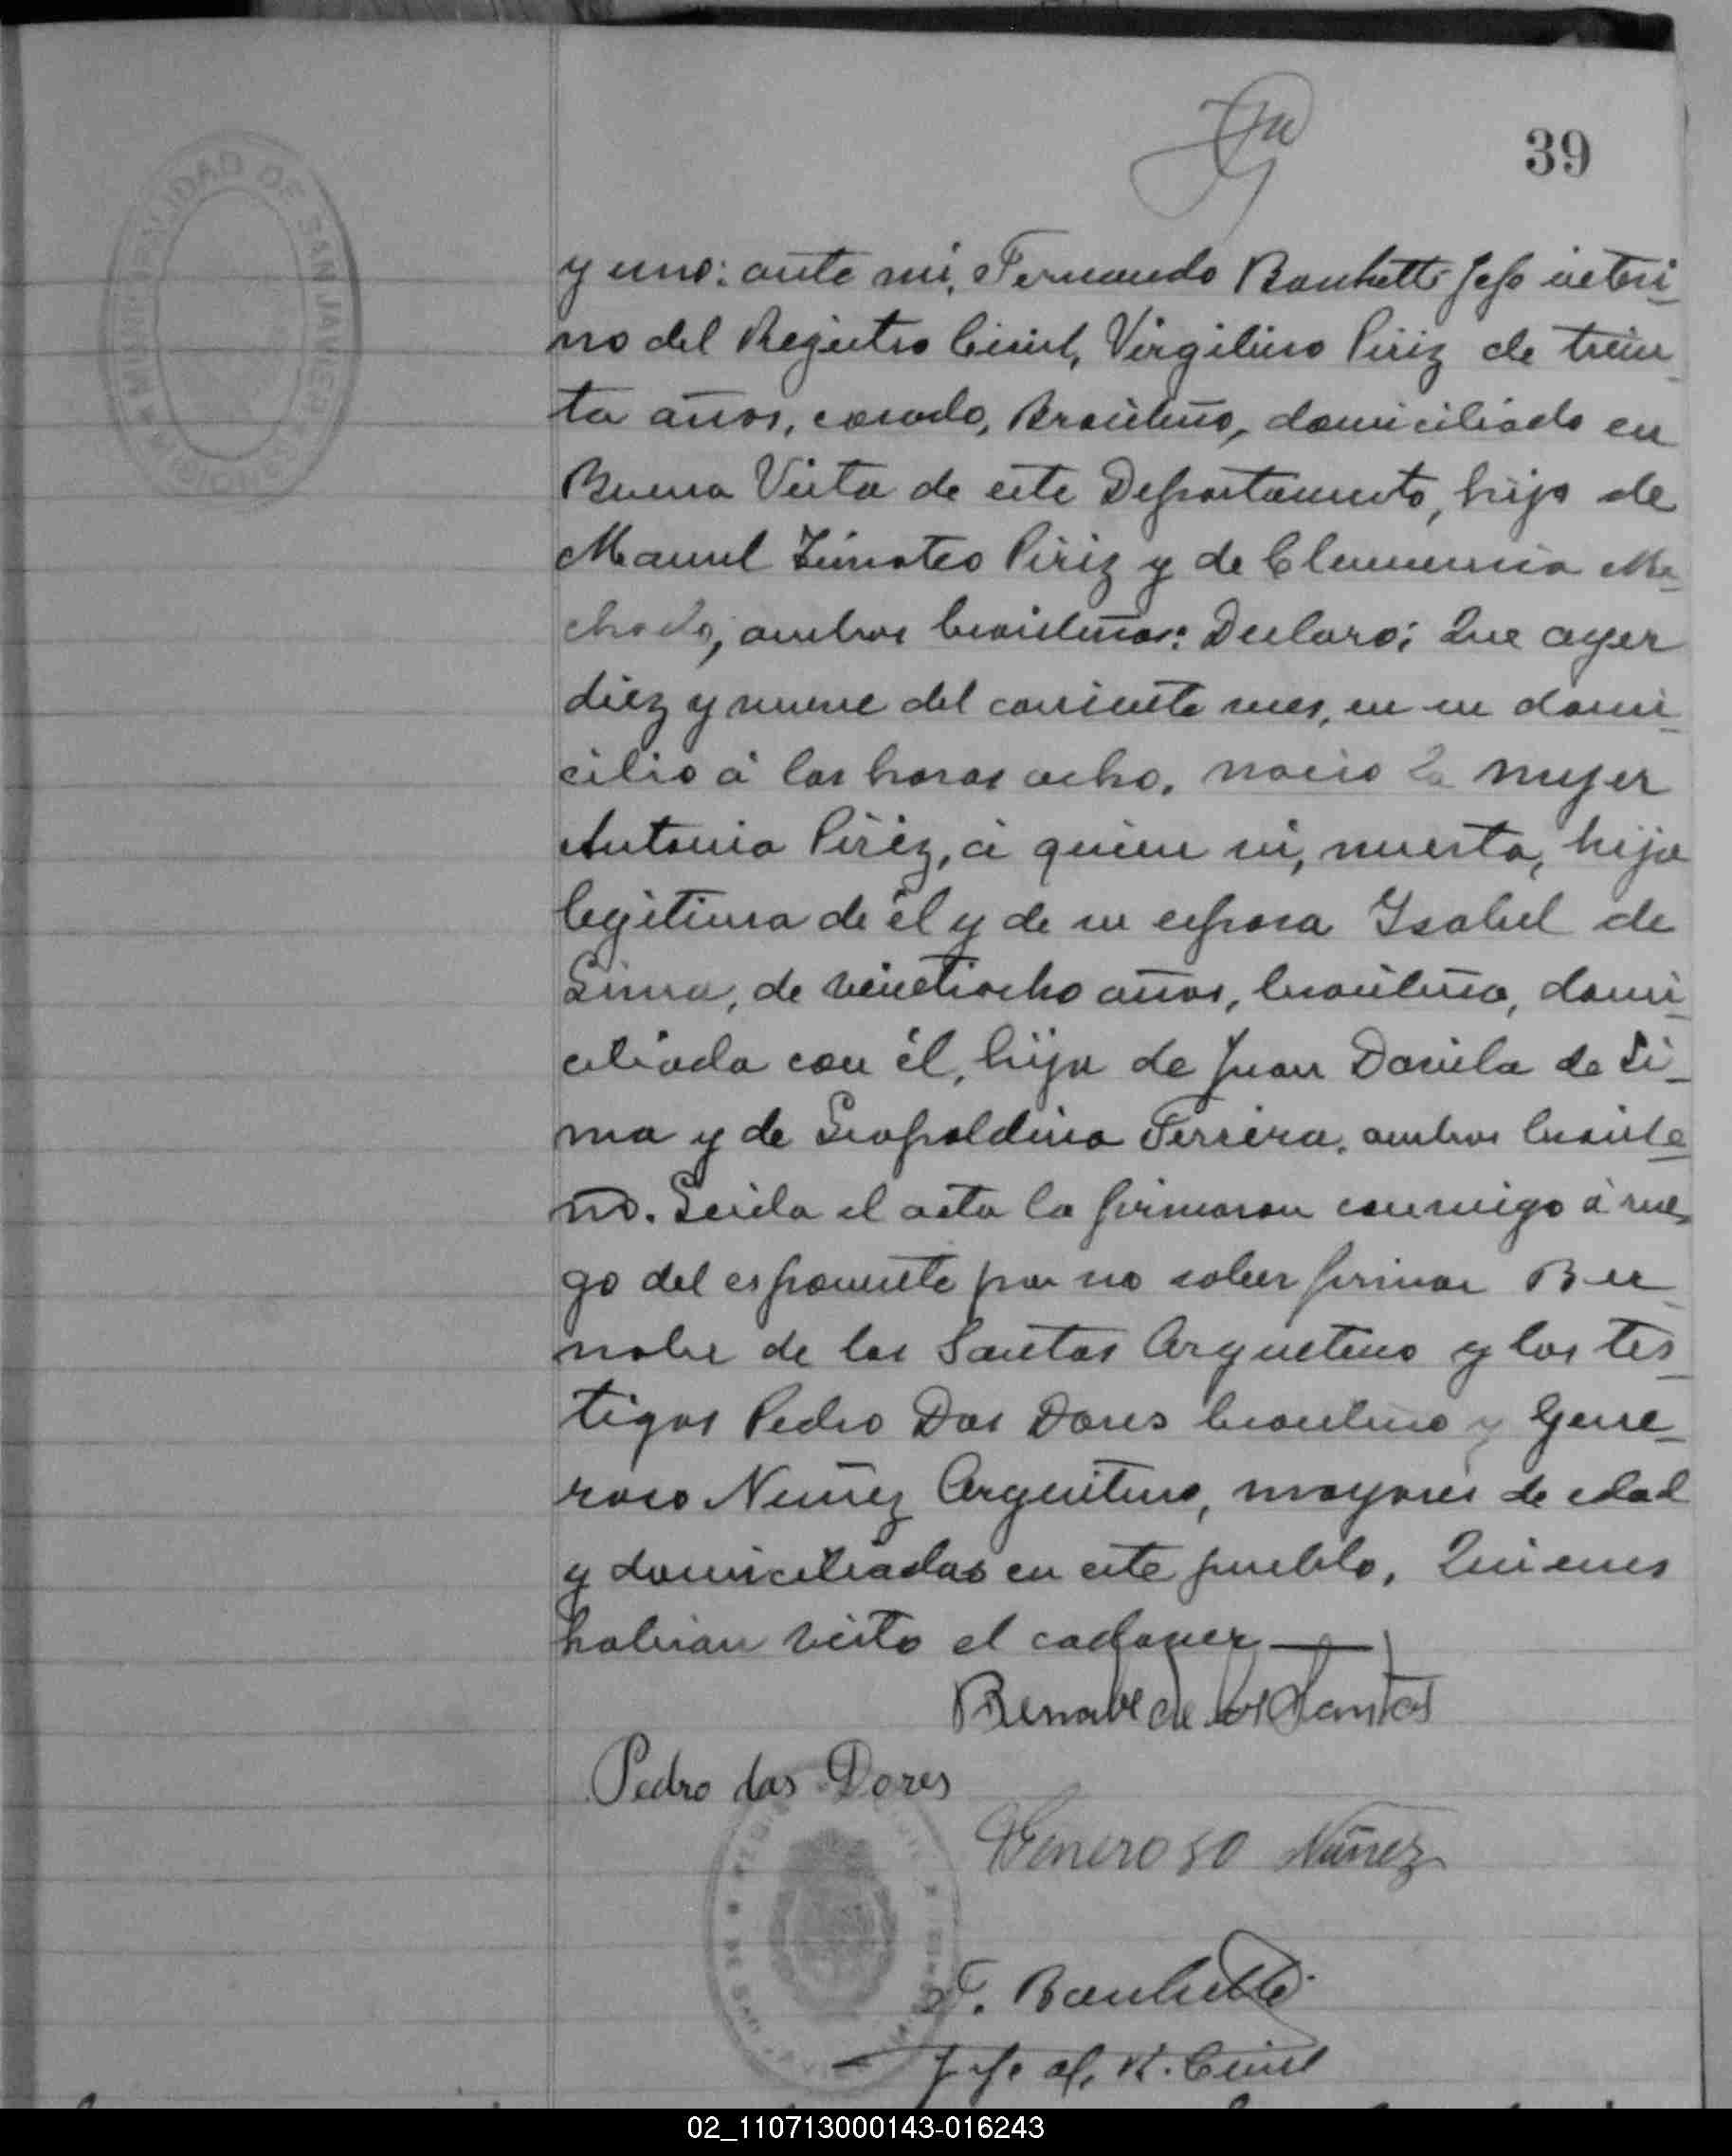 39
MUNICIPALIDAD DE SAN JAVIER MISIONES
y uno: ante mi, Fernando Jefe interi-
no del Registro Civil, Virgilino Piriz de trein-
ta años, casado, Brasileño, domiciliado en
Buena Vista de este Departamento, hijo de
Manuel Timoteo Piriz y de Clemencia Ma-
chado, ambos brasileños: Declaró: Que ayer
diez y nueve del corriente mes, en su domi-
cilio á las horas ocho, nació la mujer
Antonia Piriz, á quien vi, muerta, hija
legitima de él y de su esposa Ysabel de
Lima, de veintiocho años, brasileña, domi-
ciliada con él, hija de Juan Davila de Li-
ma y de Leopoldina Ferrera, ambos brasile-
ño. Leida el acta la firmaron conmigo á rue-
go del esponente por no saber firmar Ber-
nabe de los Santos Argentino y los tes-
tigos Pedro Dos Dores brasileño y Gene-
roso Nuñez Argentino, mayores de edad
y domiciliados en este pueblo, Quienes
habian visto el cadaver
Bernabe de los Santos
Pedro das Dores
Generoso Nuñez
F.
Jefe R. Civil
02_110713000143-016243